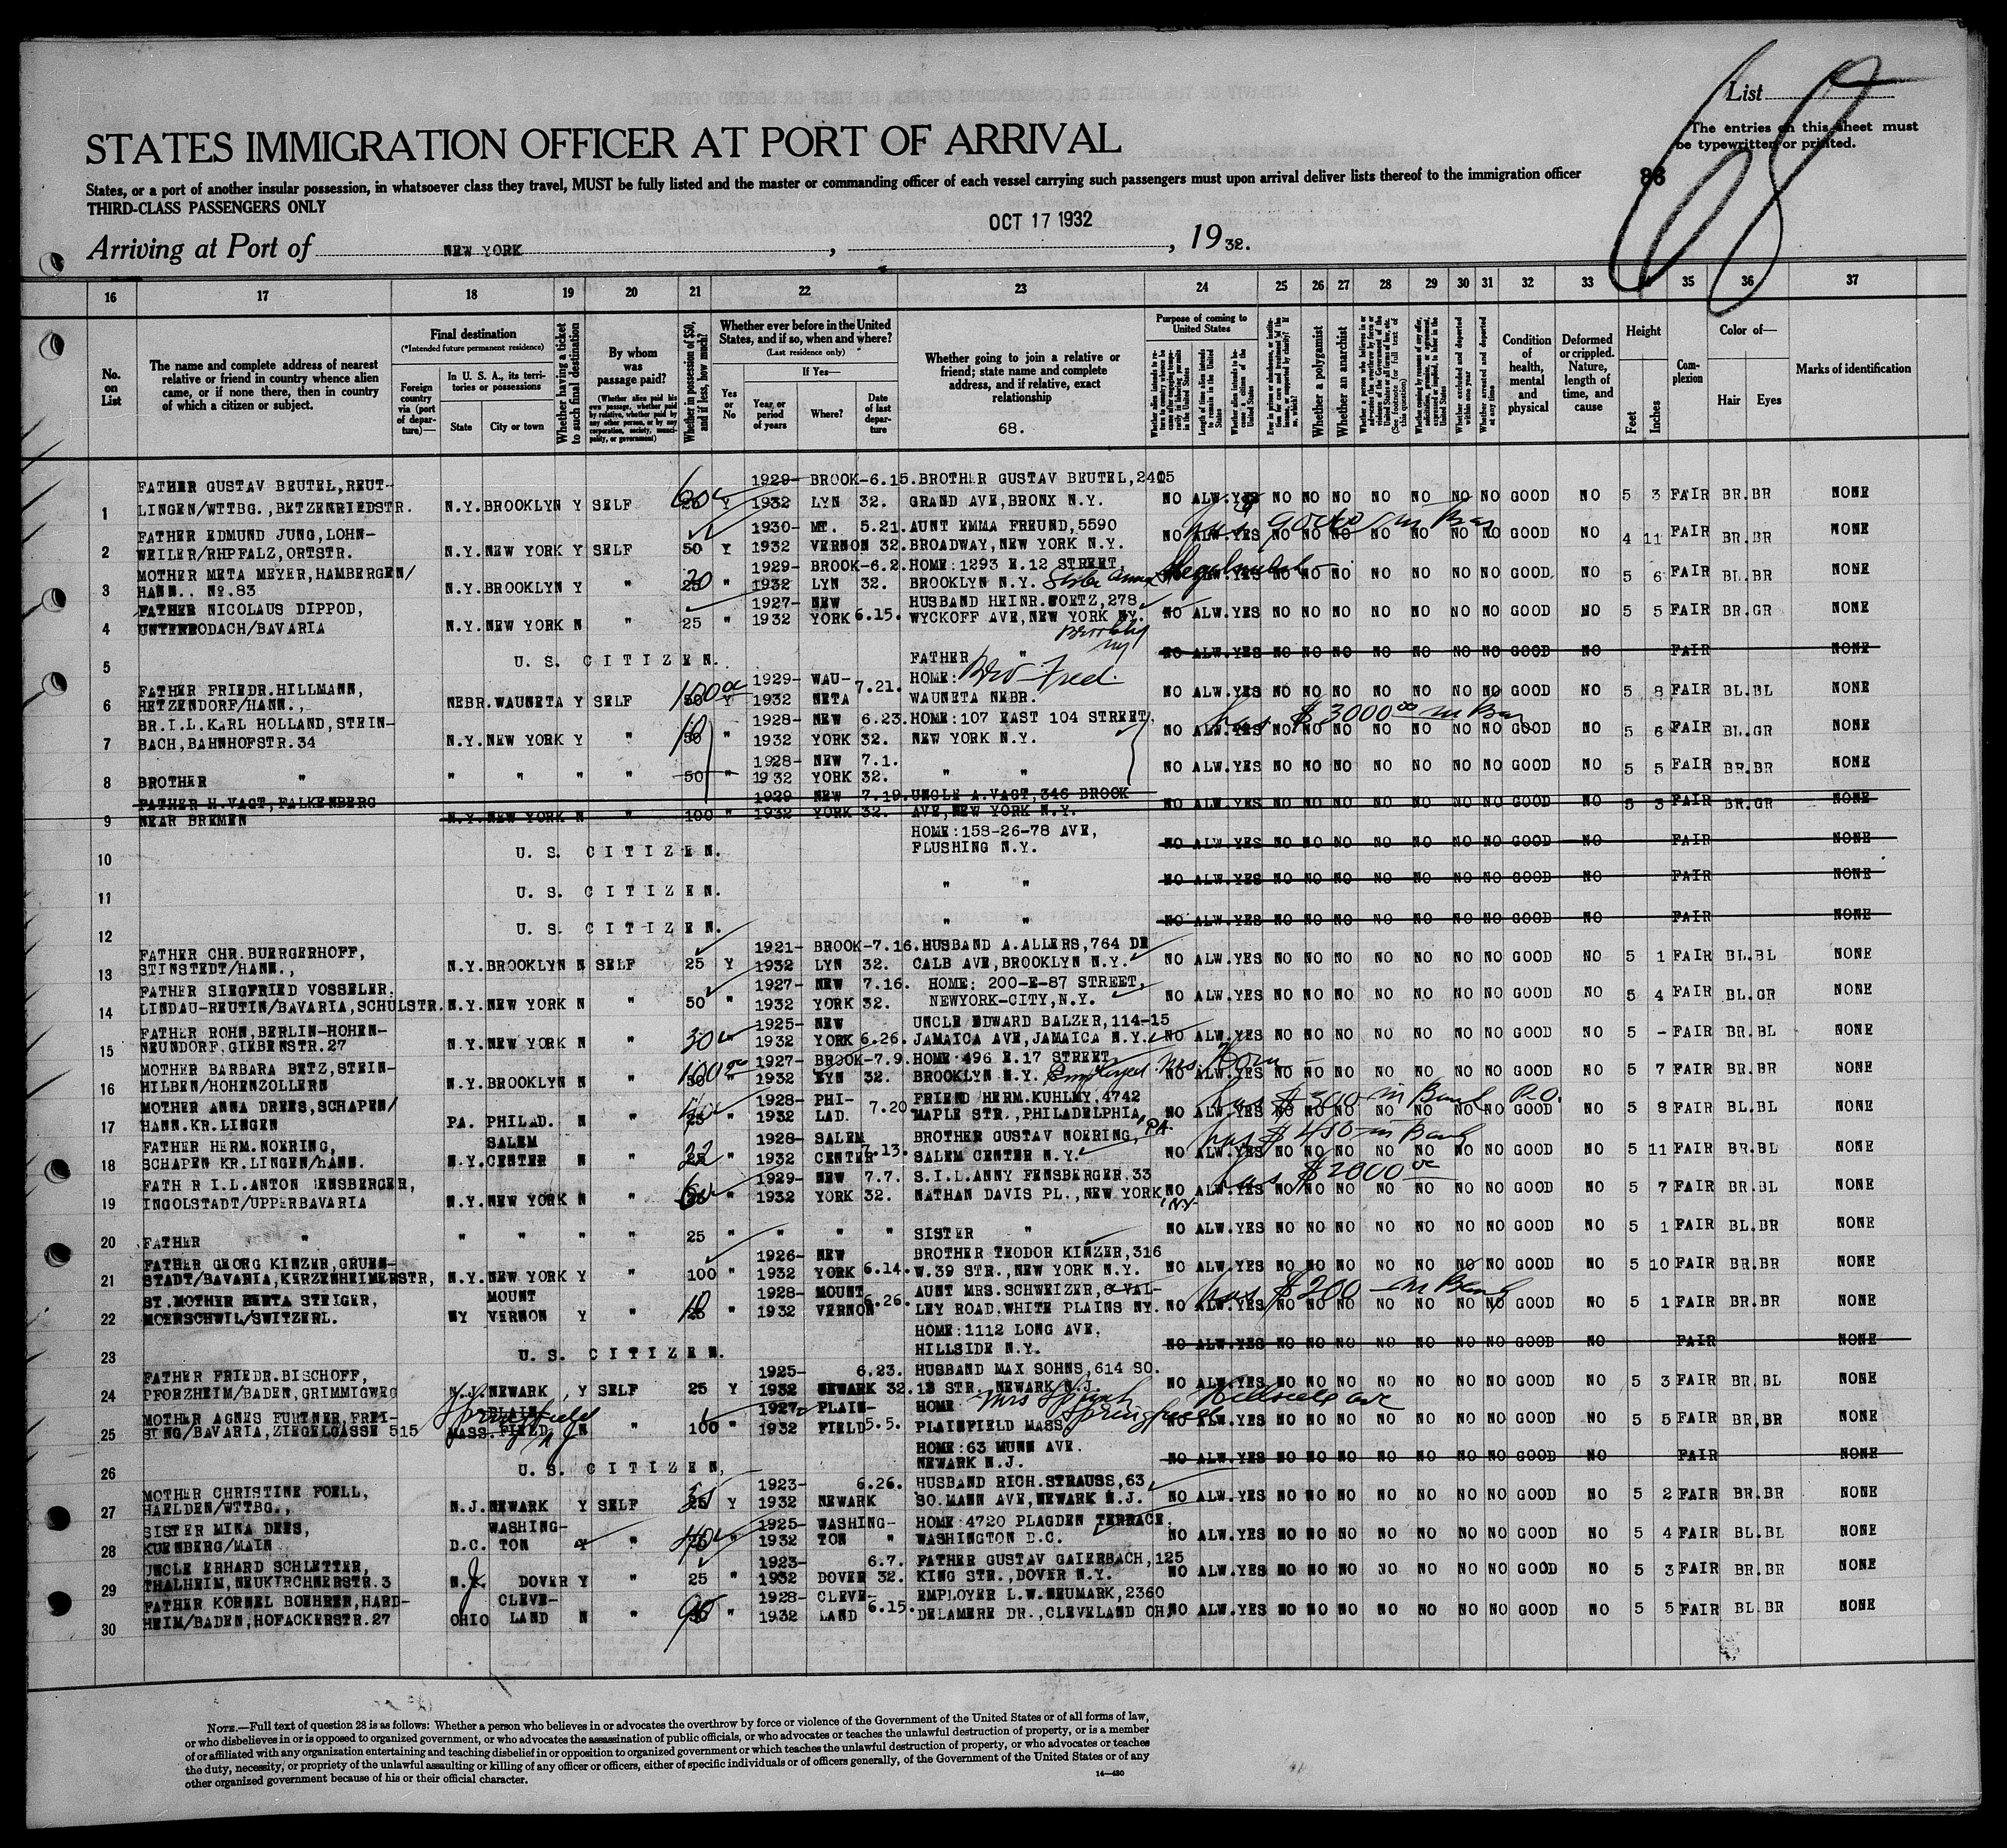 List
68
The entries on this sheet must
be typewritten or printed.
STATES IMMIGRATION OFFICER AT PORT OF ARRIVAL
States, or a port of another insular possession, in whatsoever class they travel, MUST be fully listed and the master or commanding officer of each vessel carrying such passengers must upon arrival deliver lists thereof to the immigration officer
THIRD-CLASS PASSENGERS ONLY
OCT 17 1932
Arriving at Port of NEW YORK , , 1932.
16 17 18 19 20 21 22 23 24 25 26 27 28 29 30 31 32 33 35 36 37
No. on List
The name and complete address of nearest relative or friend in country whence alien came, or if none there, then in country of which a citizen or subject.
Final destination
(*Intended future permanent residence)
Foreign country via (port of departure)—
In U. S. A., its territories or possessions
State City or town
Whether having a ticket to such final destination
By whom was passage paid?
(Whether alien paid his own passage, whether paid by relative, whether paid by any other person, or by any corporation, society, municipality, or government)
Whether in possession of $50, and if less, how much?
Whether ever before in the United States, and if so, when and where?
(Last residence only)
Yes or No
If Yes—
Year, or period of years
Where?
Date of last departure
Whether going to join a relative or friend; state name and complete address, and if relative, exact relationship
68.
Purpose of coming to United States
Whether a polygamist
Whether an anarchist
Condition of health, mental and physical
Deformed or crippled. Nature, length of time, and cause
Height
Feet Inches
Complexion
Color of—
Hair Eyes
Marks of identification
FATHER GUSTAV BEUTEL,REUT- 1929- BROOK-6.15. BROTHER GUSTAV BEUTEL,2405
1 LINGEN/WTTBG.,BETZENRIEDSTR. N.Y. BROOKLYN Y SELF Y 1932 LYN 32. GRAND AVE,BRONX N.Y. NO ALW.YES NO NO NO NO NO NO NO GOOD NO 5 3 FAIR BR.BR NONE
FATHER EDMUND JUNG,LOHN- 1930- MT. 5.21. AUNT EMMA FREUND,5590
2 WEILER/RHPFALZ,ORTSTR. N.Y. NEW YORK Y SELF 50 Y 1932 VERNON 32. BROADWAY,NEW YORK N.Y. NO ALW.YES NO NO NO NO NO NO NO GOOD NO 4 11 FAIR BR.BR NONE
MOTHER META MEYER,HAMBERGEN/ 1929- BROOK-6.2. HOME:1293 E.12 STREET,
3 HANN., No.83 N.Y. BROOKLYN Y " " 1932 LYN 32. BROOKLYN N.Y. NO ALW.YES NO NO NO NO NO NO NO GOOD NO 5 6 FAIR BL.BR NONE
FATHER NICOLAUS DIPPOD, 1927- NEW HUSBAND HEINR.GOETZ,278
4 UNTERRODACH/BAVARIA N.Y. NEW YORK N " 25 " 1932 YORK 6.15. WYCKOFF AVE,NEW YORK NY. NO ALW.YES NO NO NO NO NO NO NO GOOD NO 5 5 FAIR BR.GR NONE
Brooklyn
NY
5 U. S. CITIZEN. FATHER " NO ALW.YES NO NO NO NO NO NO NO GOOD FAIR NONE
FATHER FRIEDR.HILLMANN, 1929- WAU- 7.21. HOME: Bro Fred.
6 HETZENDORF/HANN., NEBR. WAUNETA Y SELF Y 1932 NETA WAUNETA NEBR. NO ALW.YES NO NO NO NO NO NO NO GOOD NO 5 8 FAIR BL.BL NONE
BR.I.L.KARL HOLLAND,STEIN- 1928- NEW 6.23. HOME:107 EAST 104 STREET, has $3000 00 in
7 BACH,BAHNHOFSTR.34 N.Y. NEW YORK Y " " 1932 YORK 32. NEW YORK N.Y. NO ALW.YES NO NO NO NO NO NO NO GOOD NO 5 6 FAIR BL.GR NONE
1928- NEW 7.1.
8 BROTHER " " " " " 50 " 1932 YORK 32. " " NO ALW.YES NO NO NO NO NO NO NO GOOD NO 5 5 FAIR BR.BR NONE
FATHER H.VAGT,FALKENBERG 1929 NEW 7.19. UNCLE A.VAGT,346 BROOK
9 NEAR BREMEN N.Y. NEW YORK N " 100 " 1932 YORK 32. AVE,NEW YORK N.Y. NO ALW.YES NO NO NO NO NO NO NO GOOD NO 5 3 FAIR BR.GR NONE
HOME:158-26-78 AVE,
10 U. S. CITIZEN. FLUSHING N.Y. NO ALW.YES NO NO NO NO NO NO NO GOOD NO FAIR NONE
11 U. S. CITIZEN. " " NO ALW.YES NO NO NO NO NO NO NO GOOD NO FAIR NONE
12 U. S. CITIZEN. " " NO ALW.YES NO NO NO NO NO NO NO GOOD NO FAIR NONE
FATHER CHR.BUERGERHOFF, 1921- BROOK-7.16. HUSBAND A.ALLERS,764 DE
13 STINSTEDT/HANN., N.Y. BROOKLYN N SELF 25 Y 1932 LYN 32. CALB AVE,BROOKLYN N.Y. NO ALW.YES NO NO NO NO NO NO NO GOOD NO 5 1 FAIR BL.BL NONE
FATHER SIEGFRIED VOSSELER. 1927- NEW 7.16. HOME: 200-E-87 STREET,
14 LINDAU-REUTIN/BAVARIA,SCHULSTR. N.Y. NEW YORK N " 50 " 1932 YORK 32. NEWYORK-CITY,N.Y. NO ALW.YES NO NO NO NO NO NO NO GOOD NO 5 4 FAIR BL.GR NONE
FATHER ROHN,BERLIN-HOHEN- 1925- NEW UNCLE EDWARD BALZER,114-15
15 NEUNDORF,GIEBENSTR.27 N.Y. NEW YORK N " " 1932 YORK 6.26. JAMAICA AVE,JAMAICA N.Y. NO ALW.YES NO NO NO NO NO NO NO GOOD NO 5 - FAIR BR.BL NONE
MOTHER BARBARA BETZ,STEIN- 1927- BROOK-7.9. HOME 496 E.17 STREET
16 HILBEN/HOHENZOLLERN N.Y. BROOKLYN N " " 1932 LYN 32. BROOKLYN N.Y. Employed Mrs. NO ALW.YES NO NO NO NO NO NO NO GOOD NO 5 7 FAIR BR.BR NONE
MOTHER ANNA DREES,SCHAPEN/ 1928- PHI- 7.20 FRIEND HERM.KUHLMY,4742 has $300 in Bank P.O.
17 HANN.KR.LINGEN PA. PHILAD. N " " 1932 LAD. MAPLE STR.,PHILADELPHIA,PA. NO ALW.YES NO NO NO NO NO NO NO GOOD NO 5 8 FAIR BL.BL NONE
FATHER HERM.NOERING, SALEM 1928- SALEM BROTHER GUSTAV NOERING, has $450 in Bank
18 SCHAPEN KR.LINGEN/HANN. N.Y. CENTER N " " 1932 CENTER 7.13. SALEM CENTER N.Y. NO ALW.YES NO NO NO NO NO NO NO GOOD NO 5 11 FAIR BR.BL NONE
FATH R I.L.ANTON FENSBERGER, 1929- NEW 7.7. S.I.L.ANNY FENSBERGER.33 has $2000 00
19 INGOLSTADT/UPPERBAVARIA N.Y. NEW YORK N " " 1932 YORK 32. NATHAN DAVIS PL.,NEW YORK,N.Y. NO ALW.YES NO NO NO NO NO NO NO GOOD NO 5 7 FAIR BR.BL NONE
20 FATHER " " " " " 25 " " " " SISTER " NO ALW.YES NO NO NO NO NO NO NO GOOD NO 5 1 FAIR BL.BR NONE
FATHER GEORG KINZER,GRUEN- 1926- NEW BROTHER TEODOR KINZER,316
21 STADT/BAVARIA,KERZENHEIMERSTR, N.Y. NEW YORK Y " 100 " 1932 YORK 6.14. W.39 STR.,NEW YORK N.Y. NO ALW.YES NO NO NO NO NO NO NO GOOD NO 5 10 FAIR BR.BR NONE
ST.MOTHER BERTA STEIGER, MOUNT 1928- MOUNT 6.26. AUNT MRS.SCHWEIZER, VAL- has $200 in Bank
22 MOERSCHWIL/SWITZERL. NY VERNON Y " " 1932 VERNON LEY ROAD.WHITE PLAINS NY. NO ALW.YES NO NO NO NO NO NO NO GOOD NO 5 1 FAIR BR.BR NONE
HOME:1112 LONG AVE.
23 U. S. CITIZEN. HILLSIDE N.Y. NO ALW.YES NO NO NO NO NO NO NO GOOD NO FAIR NONE
FATHER FRIEDR.BISCHOFF, 1925- 6.23. HUSBAND MAX SOHNS,614 SO.
24 PFORZHEIM/BADEN,GRIMMIGWEG N.J. NEWARK Y SELF 25 Y 1932 NEWARK 32. 18 STR. NEWARK N.J. NO ALW.YES NO NO NO NO NO NO NO GOOD NO 5 3 FAIR BR.BL NONE
MOTHER AGNES FURTNER,FREI- Springfield PLAIN- 1927- PLAIN- HOME Mrs Hillside ave
25 SING/BAVARIA,ZIEGELGASSE 515 MASS. FIELD N " 100 " 1932 FIELD 5.5. PLAINFIELD MASS Springfield NO ALW.YES NO NO NO NO NO NO NO GOOD NO 5 5 FAIR BR.BR NONE
NJ
HOME:63 MUNN AVE.
26 U. S. CITIZEN, NEWARK N.J. NO ALW.YES NO NO NO NO NO NO NO GOOD NO FAIR NONE
MOTHER CHRISTINE FOELL, 1923- 6.26. HUSBAND RICH.STRAUSS,63
27 HAELDEN/WTTBG., N.J. NEWARK Y SELF Y 1932 NEWARK SO.MANN AVE,NEWARK N.J. NO ALW.YES NO NO NO NO NO NO NO GOOD NO 5 2 FAIR BR.BR NONE
SISTER MINA DEES, WASHING- 1925- WASHING- HOME:4720 PLAGDEN TERRACE.
28 KUENBERG/MAIN D.C. TON " " 1932 TON " WASHINGTON D.C. NO ALW.YES NO NO NO NO NO NO NO GOOD NO 5 4 FAIR BL.BL NONE
UNCLE ERHARD SCHLETTER, 1923- 6.7. FATHER GUSTAV GAIERBACH,125
29 THALHEIM,NEUKIRCHNERSTR.3 N.J. DOVER Y " 25 " 1932 DOVER 32. KING STR.,DOVER N.Y. NO ALW.YES NO NO NO NO NO NO NO GOOD NO 5 3 FAIR BR.BR NONE
FATHER KORNEL BOEHRER,HARD- CLEVE- 1928- CLEVE- EMPLOYER L.W.NEUMARK,2360
30 HEIM/BADEN,HOFACKERSTR.27 OHIO LAND N " " 1932 LAND 6.15. DELAMERE DR.,CLEVELAND OH. NO ALW.YES NO NO NO NO NO NO NO GOOD NO 5 5 FAIR BL.BR NONE
NOTE.—Full text of question 28 is as follows: Whether a person who believes in or advocates the overthrow by force or violence of the Government of the United States or of all forms of law,
or who disbelieves in or is opposed to organized government, or who advocates the assassination of public officials, or who advocates or teaches the unlawful destruction of property, or is a member
of or affiliated with any organization entertaining and teaching disbelief in or opposition to organized government or which teaches the unlawful destruction of property, or who advocates or teaches
the duty, necessity, or propriety of the unlawful assaulting or killing of any officer or officers, either of specific individuals or of officers generally, of the Government of the United States or of any
other organized government because of his or their official character.
14—430